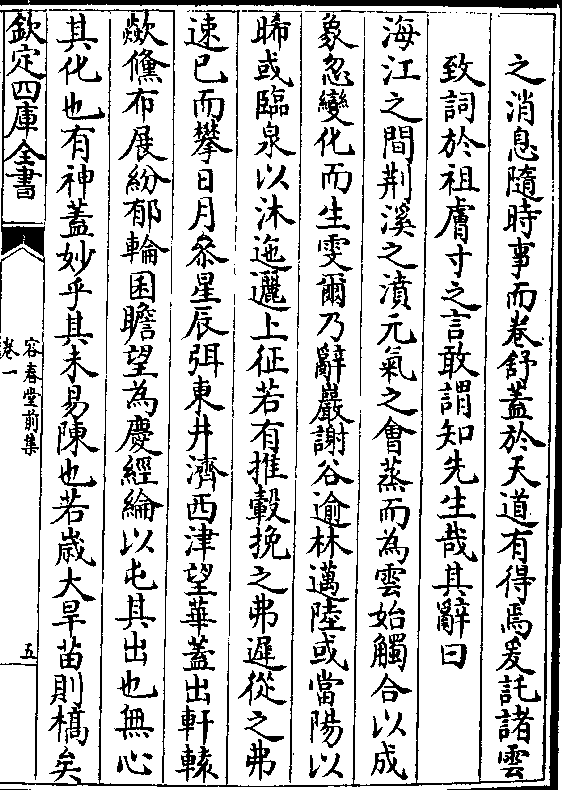 之消息隨時事而卷舒蓋於天道有得焉爰託諸雲
致詞於祖膚寸之言敢謂知先生哉其辭曰
海江之間荆溪之濆元氣之會蒸而為雲始觸合以成
象忽變化而生雯爾乃辭巖謝谷逾林邁陸或當陽以
晞或臨泉以沐迤邐上征若有推轂挽之弗遲從之弗
速已而攀日月叅星辰弭東井濟西津望華蓋出軒轅
歘儵布展紛郁輪囷瞻望為慶經綸以屯其出也無心
其化也有神蓋妙乎其未易陳也若歲大旱苗則槁矣
欽定四庫全書
容春堂前集
卷一
五